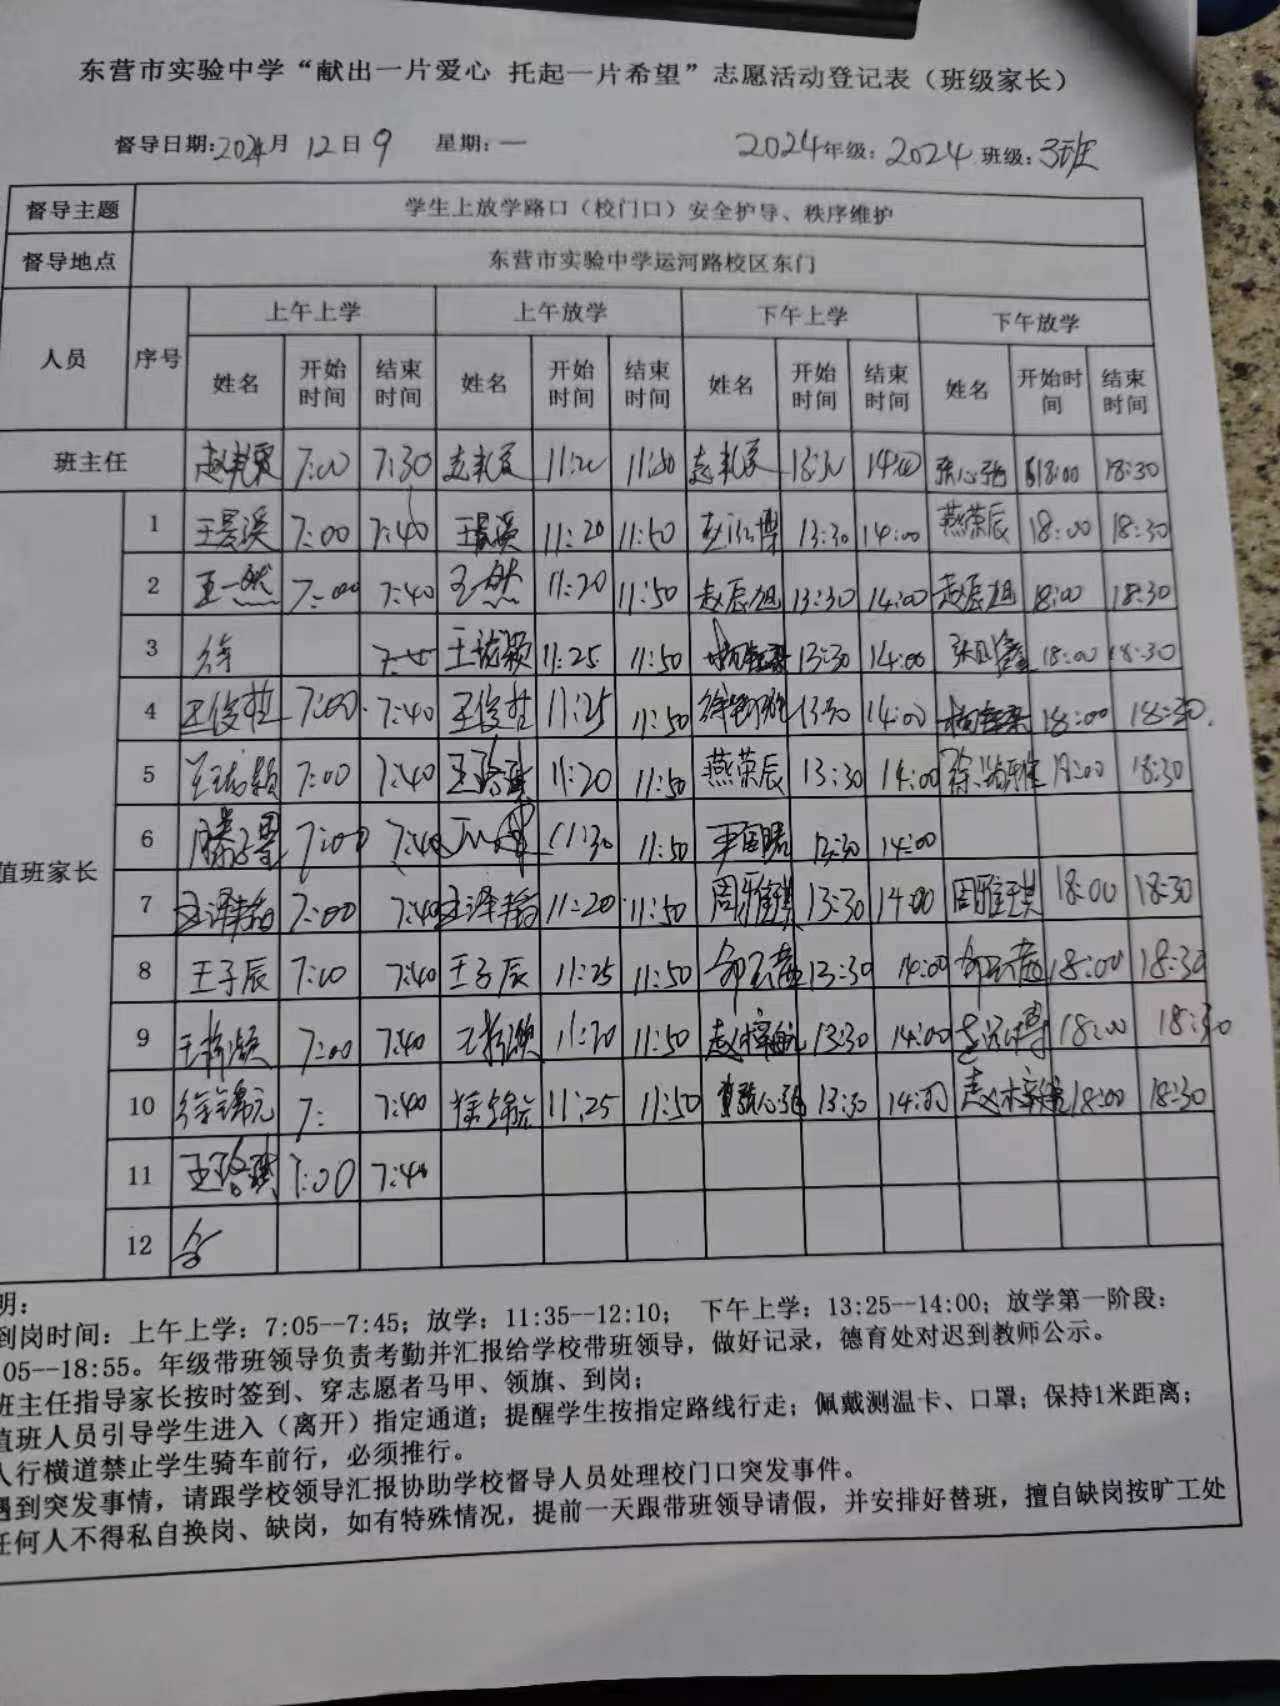 东营市实验中学“献出一片爱心 托起一片希望”志愿活动登记表（班级家长）
督导日期:2024月 12日9 星期:一 2024年级:2024班级:3班
督导主题 学生上放学路口（校门口）安全护导、秩序维护
督导地点 东营市实验中学运河路校区东门
人员 序号 上午上学 上午放学 下午上学 下午放学
姓名 开始时间 结束时间 姓名 开始时间 结束时间 姓名 开始时间 结束时间 姓名 开始时间 结束时间
班主任 7:00 7:30 11:20 11:50 13:30 14:00 张心驰 18:00 18:30
值班家长
1 王景溪 7:00 7:40 王景溪 11:20 11:50 13:30 14:00 燕荣辰 18:00 18:30
2 王一然 7:00 7:40 王一然 11:20 11:50 赵辰旭 13:30 14:00 赵辰旭 18:00 18:30
3 徐 11:25 11:50 13:30 14:00 18:00 18:30
4 王俊哲 7:00 7:40 王俊哲 11:25 11:50 13:30 14:00 18:00 18:30
5 7:00 7:40 11:20 11:50 燕荣辰 13:30 14:00 18:00 18:30
6 滕子墨 7:00 7:40 11:30 11:50 13:30 14:00
7 王泽翰 7:00 7:40 王泽翰 11:20 11:50 周雅琪 13:30 14:00 周雅琪 18:00 18:30
8 王子辰 7:00 7:40 王子辰 11:25 11:50 13:30 14:00 18:00 18:30
9 7:00 7:40 11:20 11:50 赵梓航 13:30 14:00 18:00 18:30
10 徐锦元 7: 7:40 徐锦元 11:25 11:50 张心驰 13:30 14:00 赵梓航 18:00 18:30
11 7:00 7:40
12
明：
到岗时间：上午上学：7:05--7:45；放学：11:35--12:10； 下午上学：13:25--14:00；放学第一阶段：
05--18:55。年级带班领导负责考勤并汇报给学校带班领导，做好记录，德育处对迟到教师公示。
班主任指导家长按时签到、穿志愿者马甲、领旗、到岗；
值班人员引导学生进入（离开）指定通道；提醒学生按指定路线行走；佩戴测温卡、口罩；保持1米距离；
人行横道禁止学生骑车前行，必须推行。
遇到突发事情，请跟学校领导汇报协助学校督导人员处理校门口突发事件。
任何人不得私自换岗、缺岗，如有特殊情况，提前一天跟带班领导请假，并安排好替班，擅自缺岗按旷工处